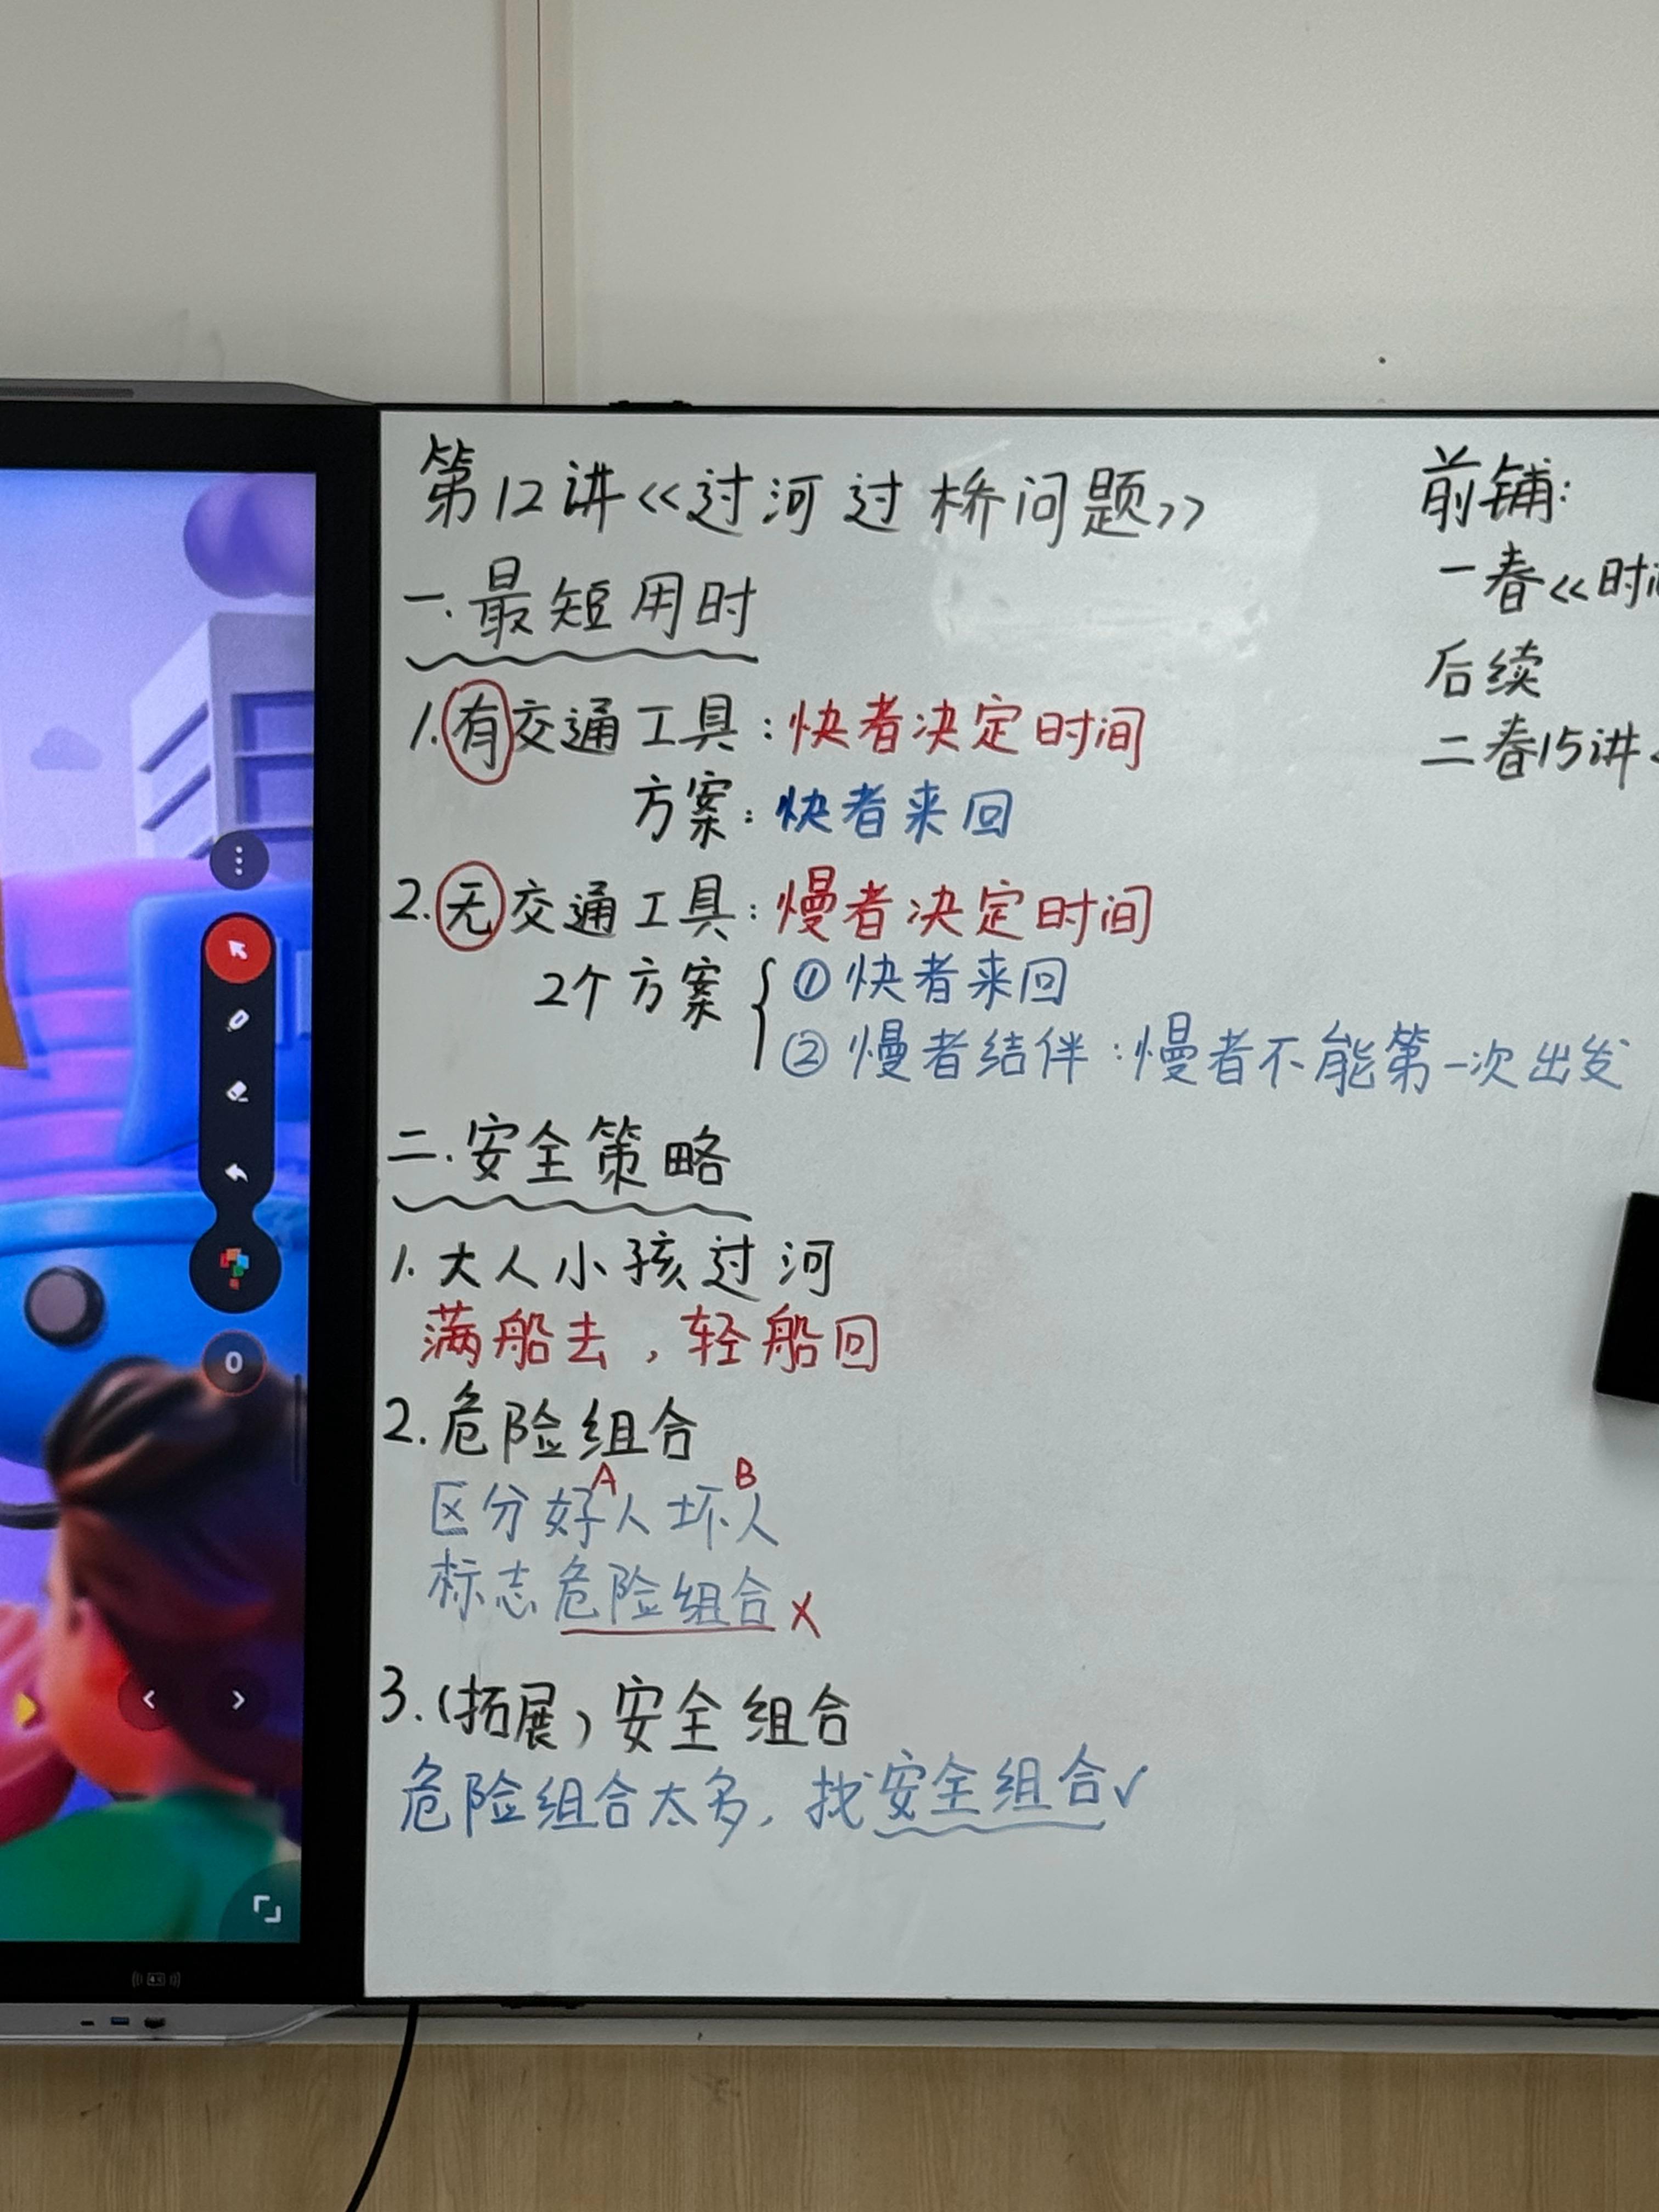 第12讲《过河过桥问题》
一.最短用时
1.有交通工具:快者决定时间
方案:快者来回
2.无交通工具:慢者决定时间
2个方案
①快者来回
②慢者结伴:慢者不能第一次出发
二.安全策略
1.大人小孩过河
满船去,轻船回
2.危险组合
A B
区分好人坏人
标志危险组合X
3.(拓展)安全组合
危险组合太多,找安全组合✓
前铺:
一春《时
后续
二春15讲
0